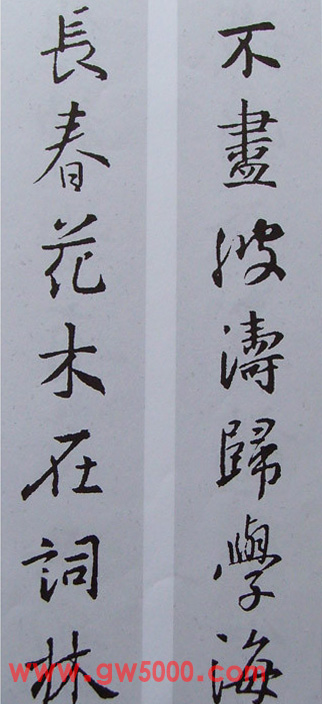 不盡波濤歸學海
長春花木在詞林
www.gw5000.com